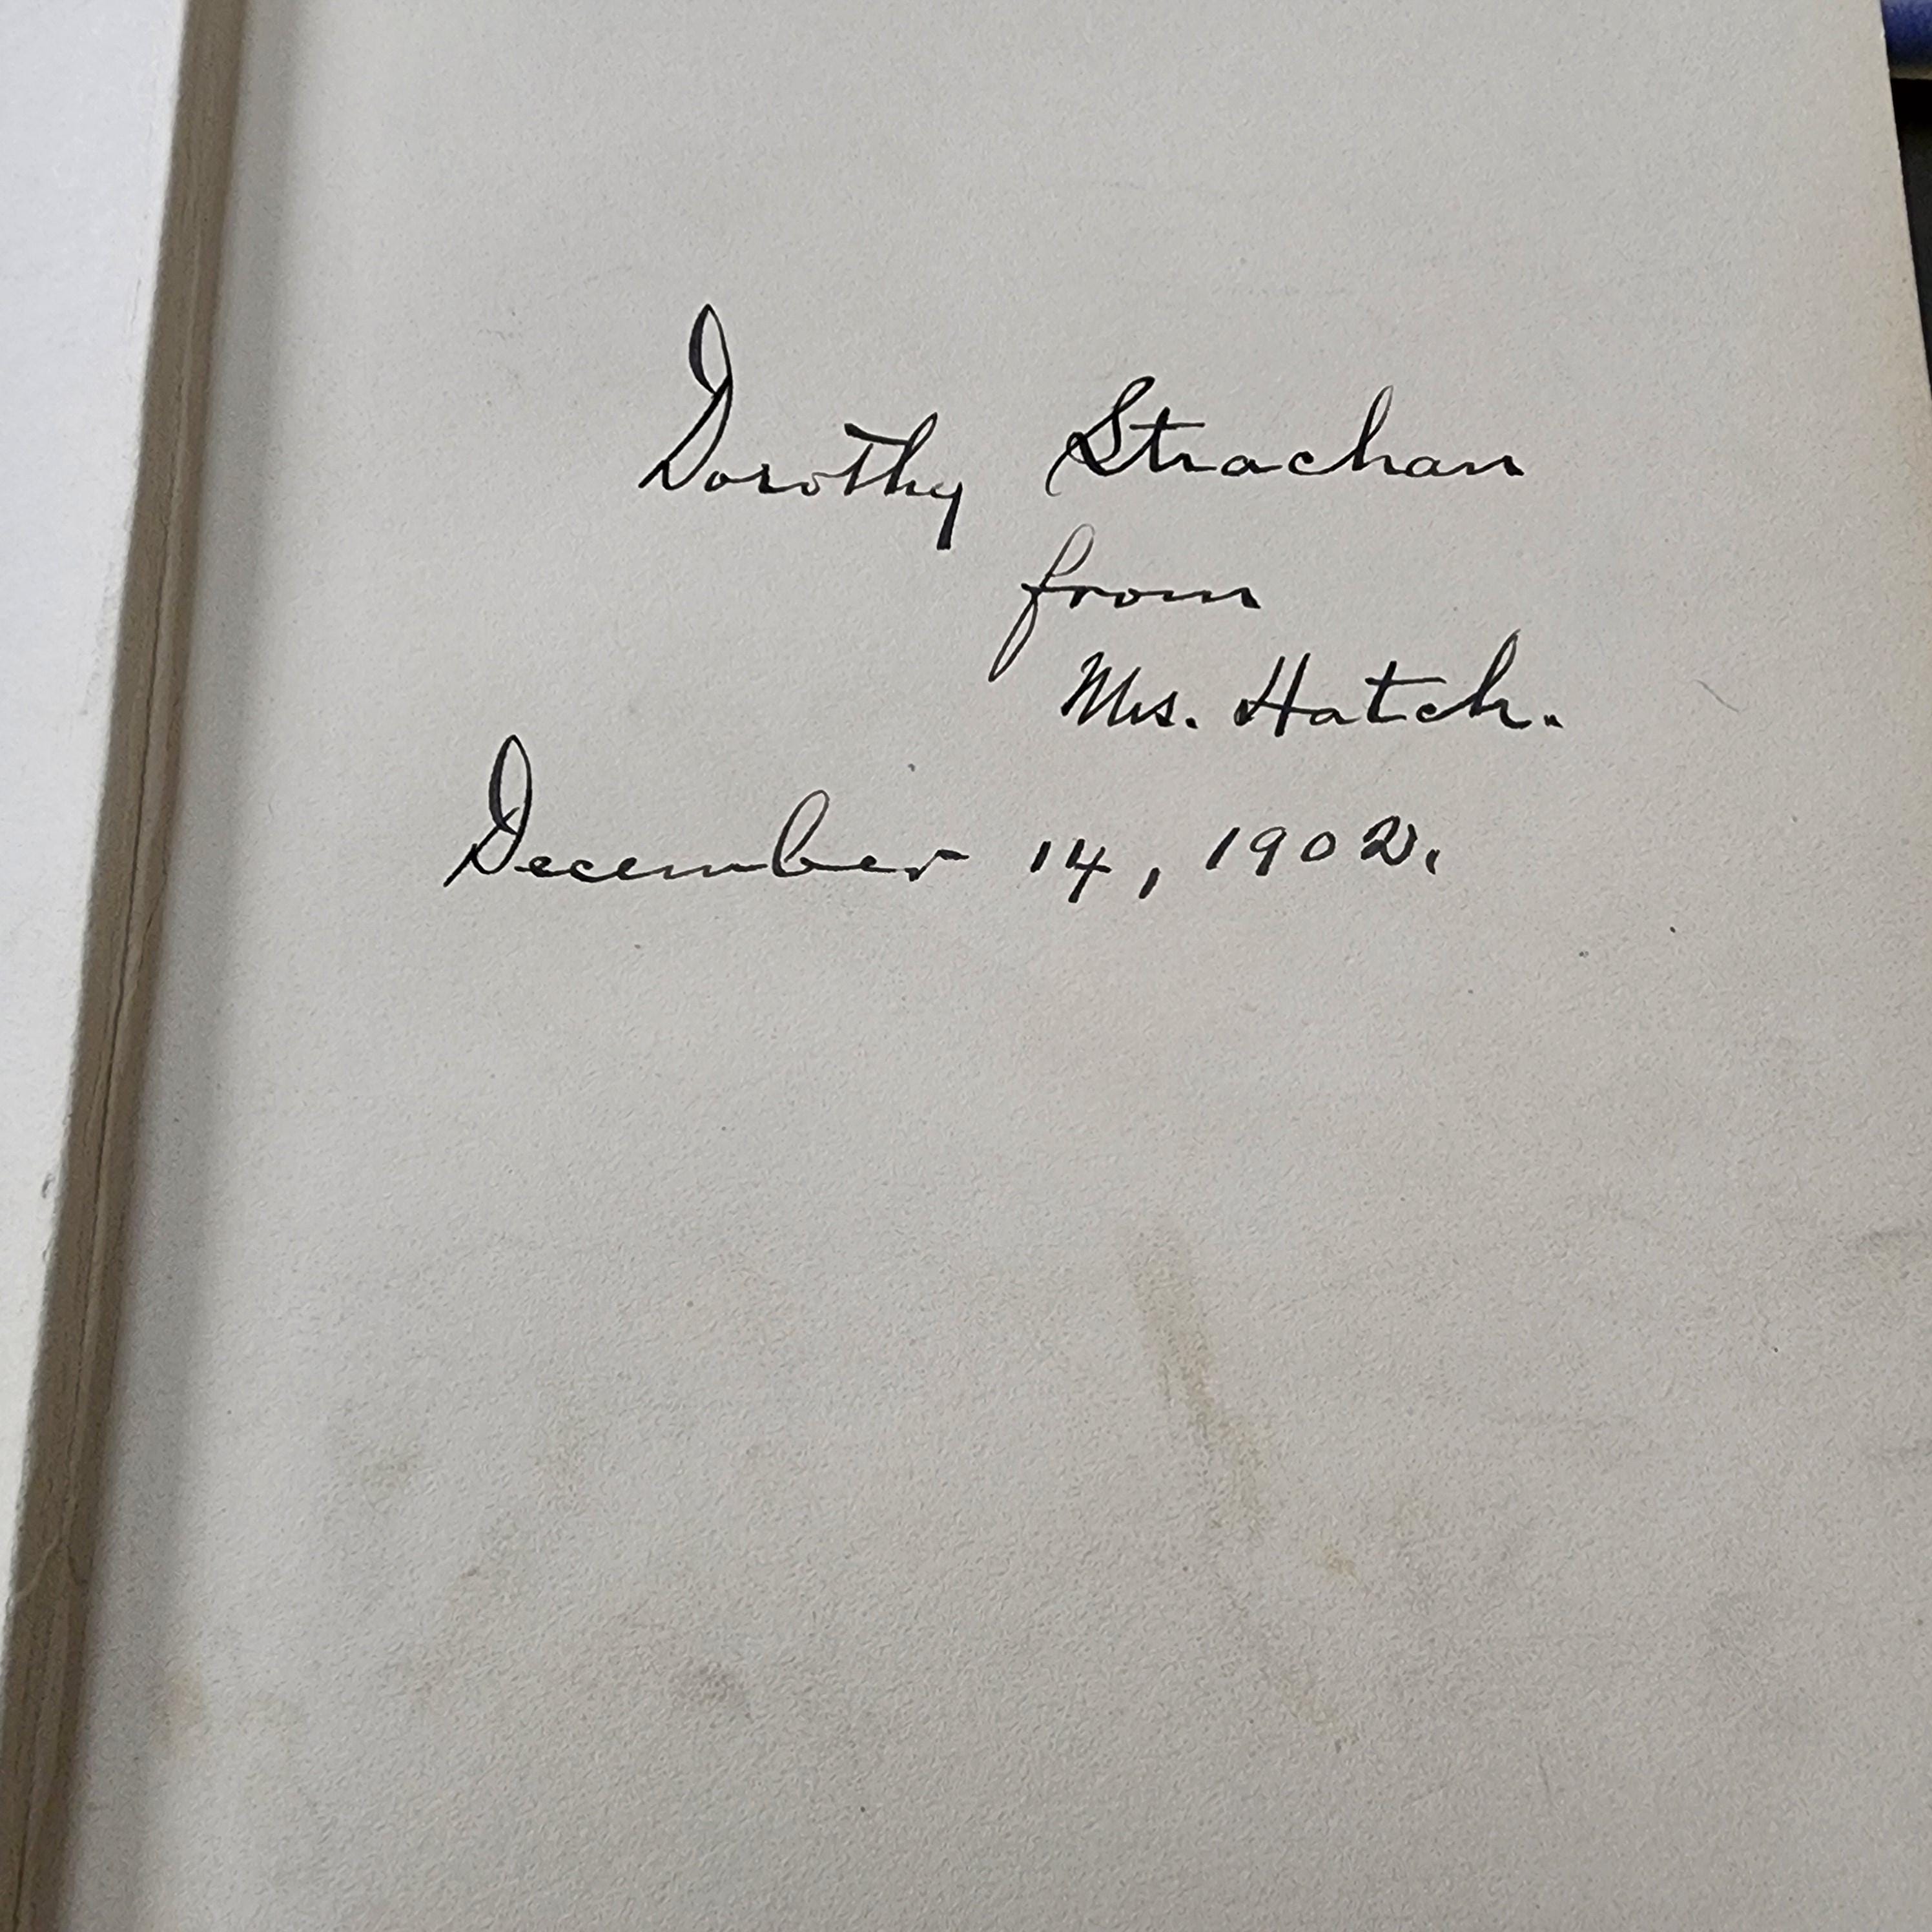 Dorothy Strachan
from
Mrs. Hatch.
December 14, 1902.